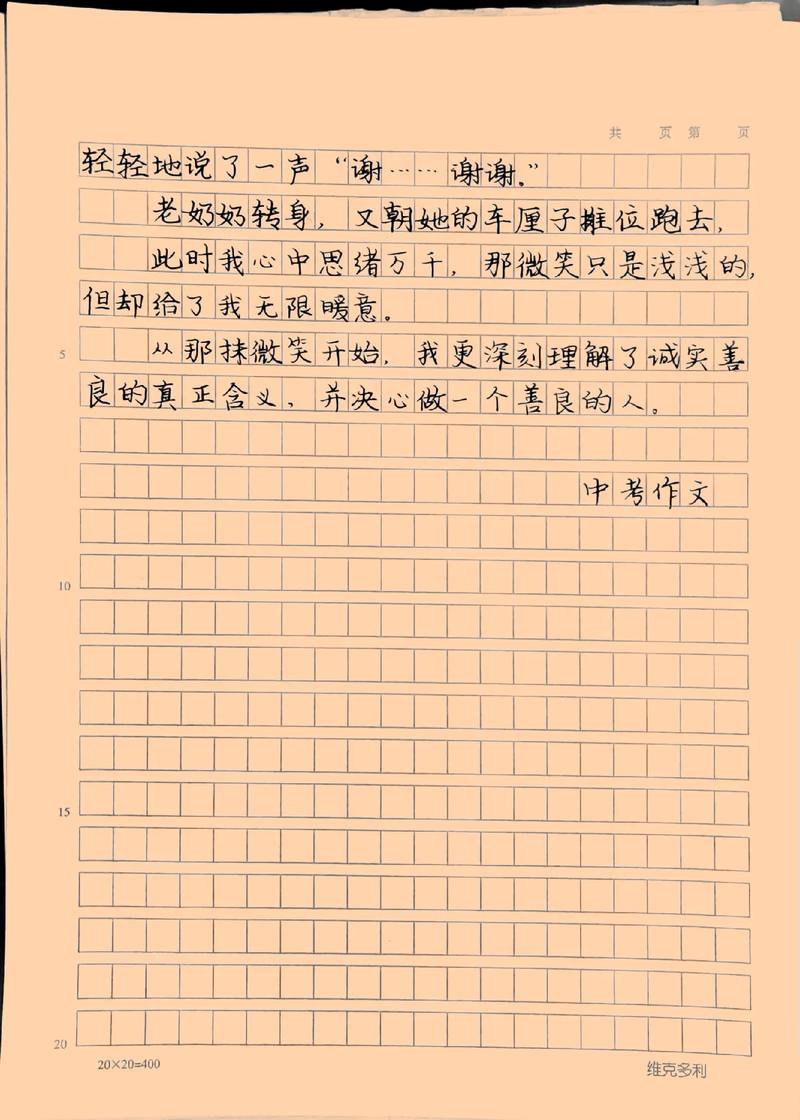 共 页 第 页
轻轻地说了一声“谢……谢谢。”
老奶奶转身，又朝她的车厘子摊位跑去，
此时我心中思绪万千，那微笑只是浅浅的，
但却给了我无限暖意。
5 从那抹微笑开始，我更深刻理解了诚实善
良的真正含义，并决心做一个善良的人。
中考作文
10
15
20
20×20=400 维克多利